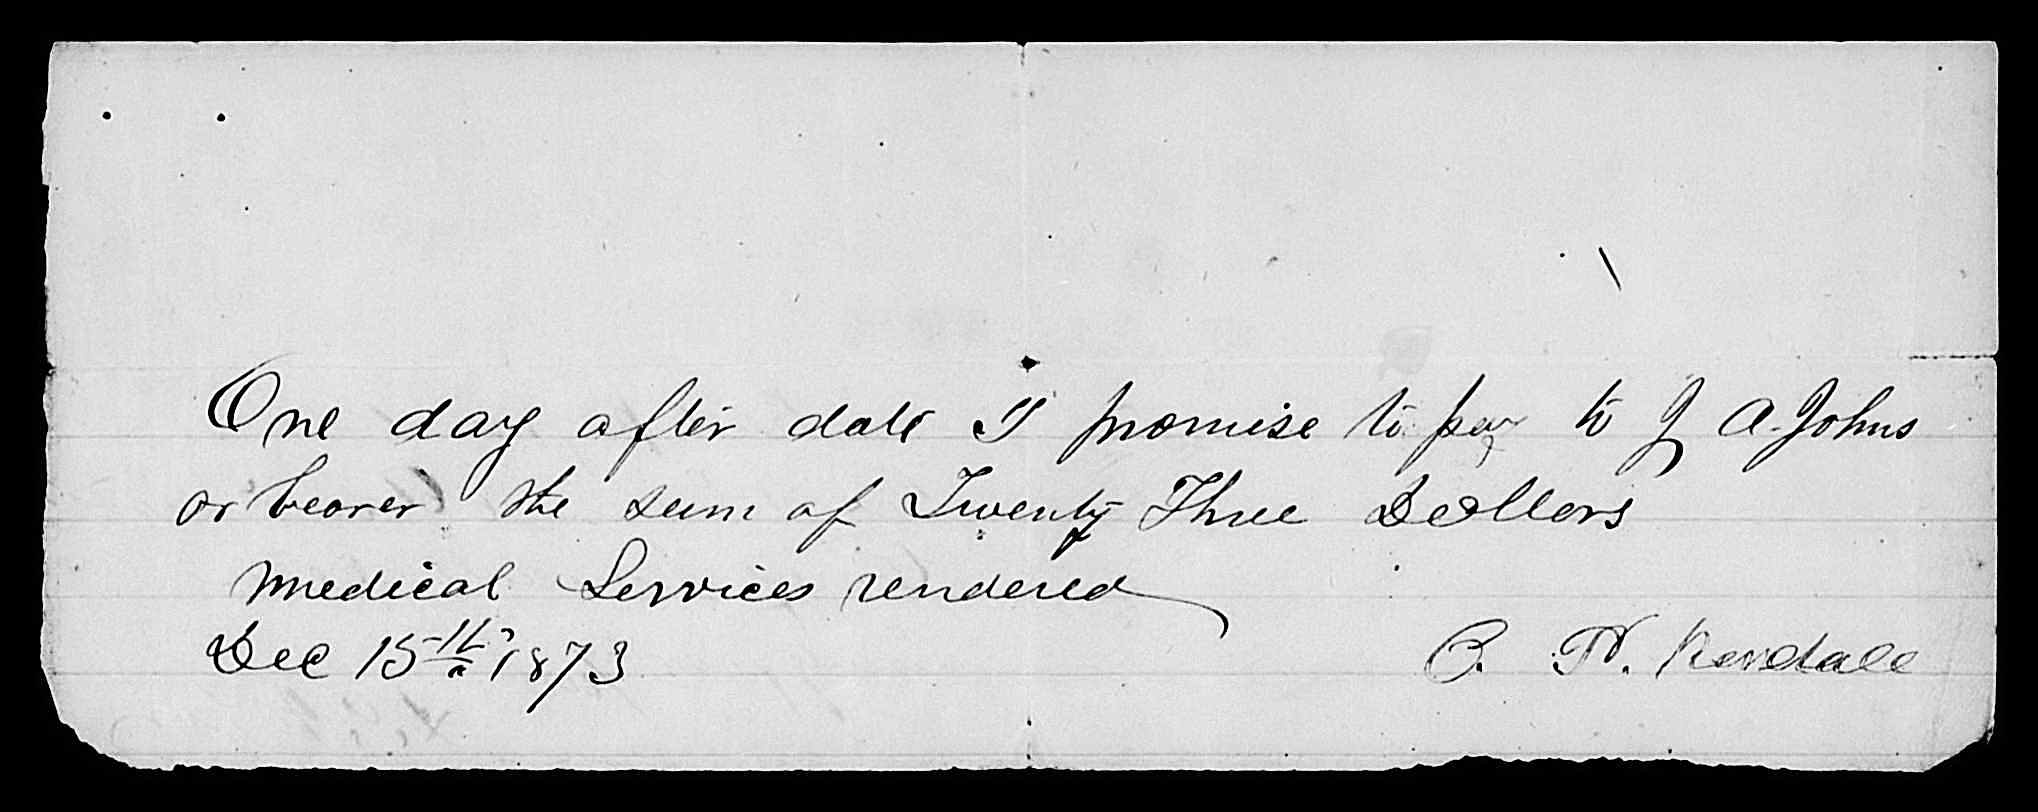 One day after date I promise to pay to J A. Johns
or bearer the sum of Twenty Three Dollars
Medical Services rendered
Dec 15th 1873 C. H. Kendall